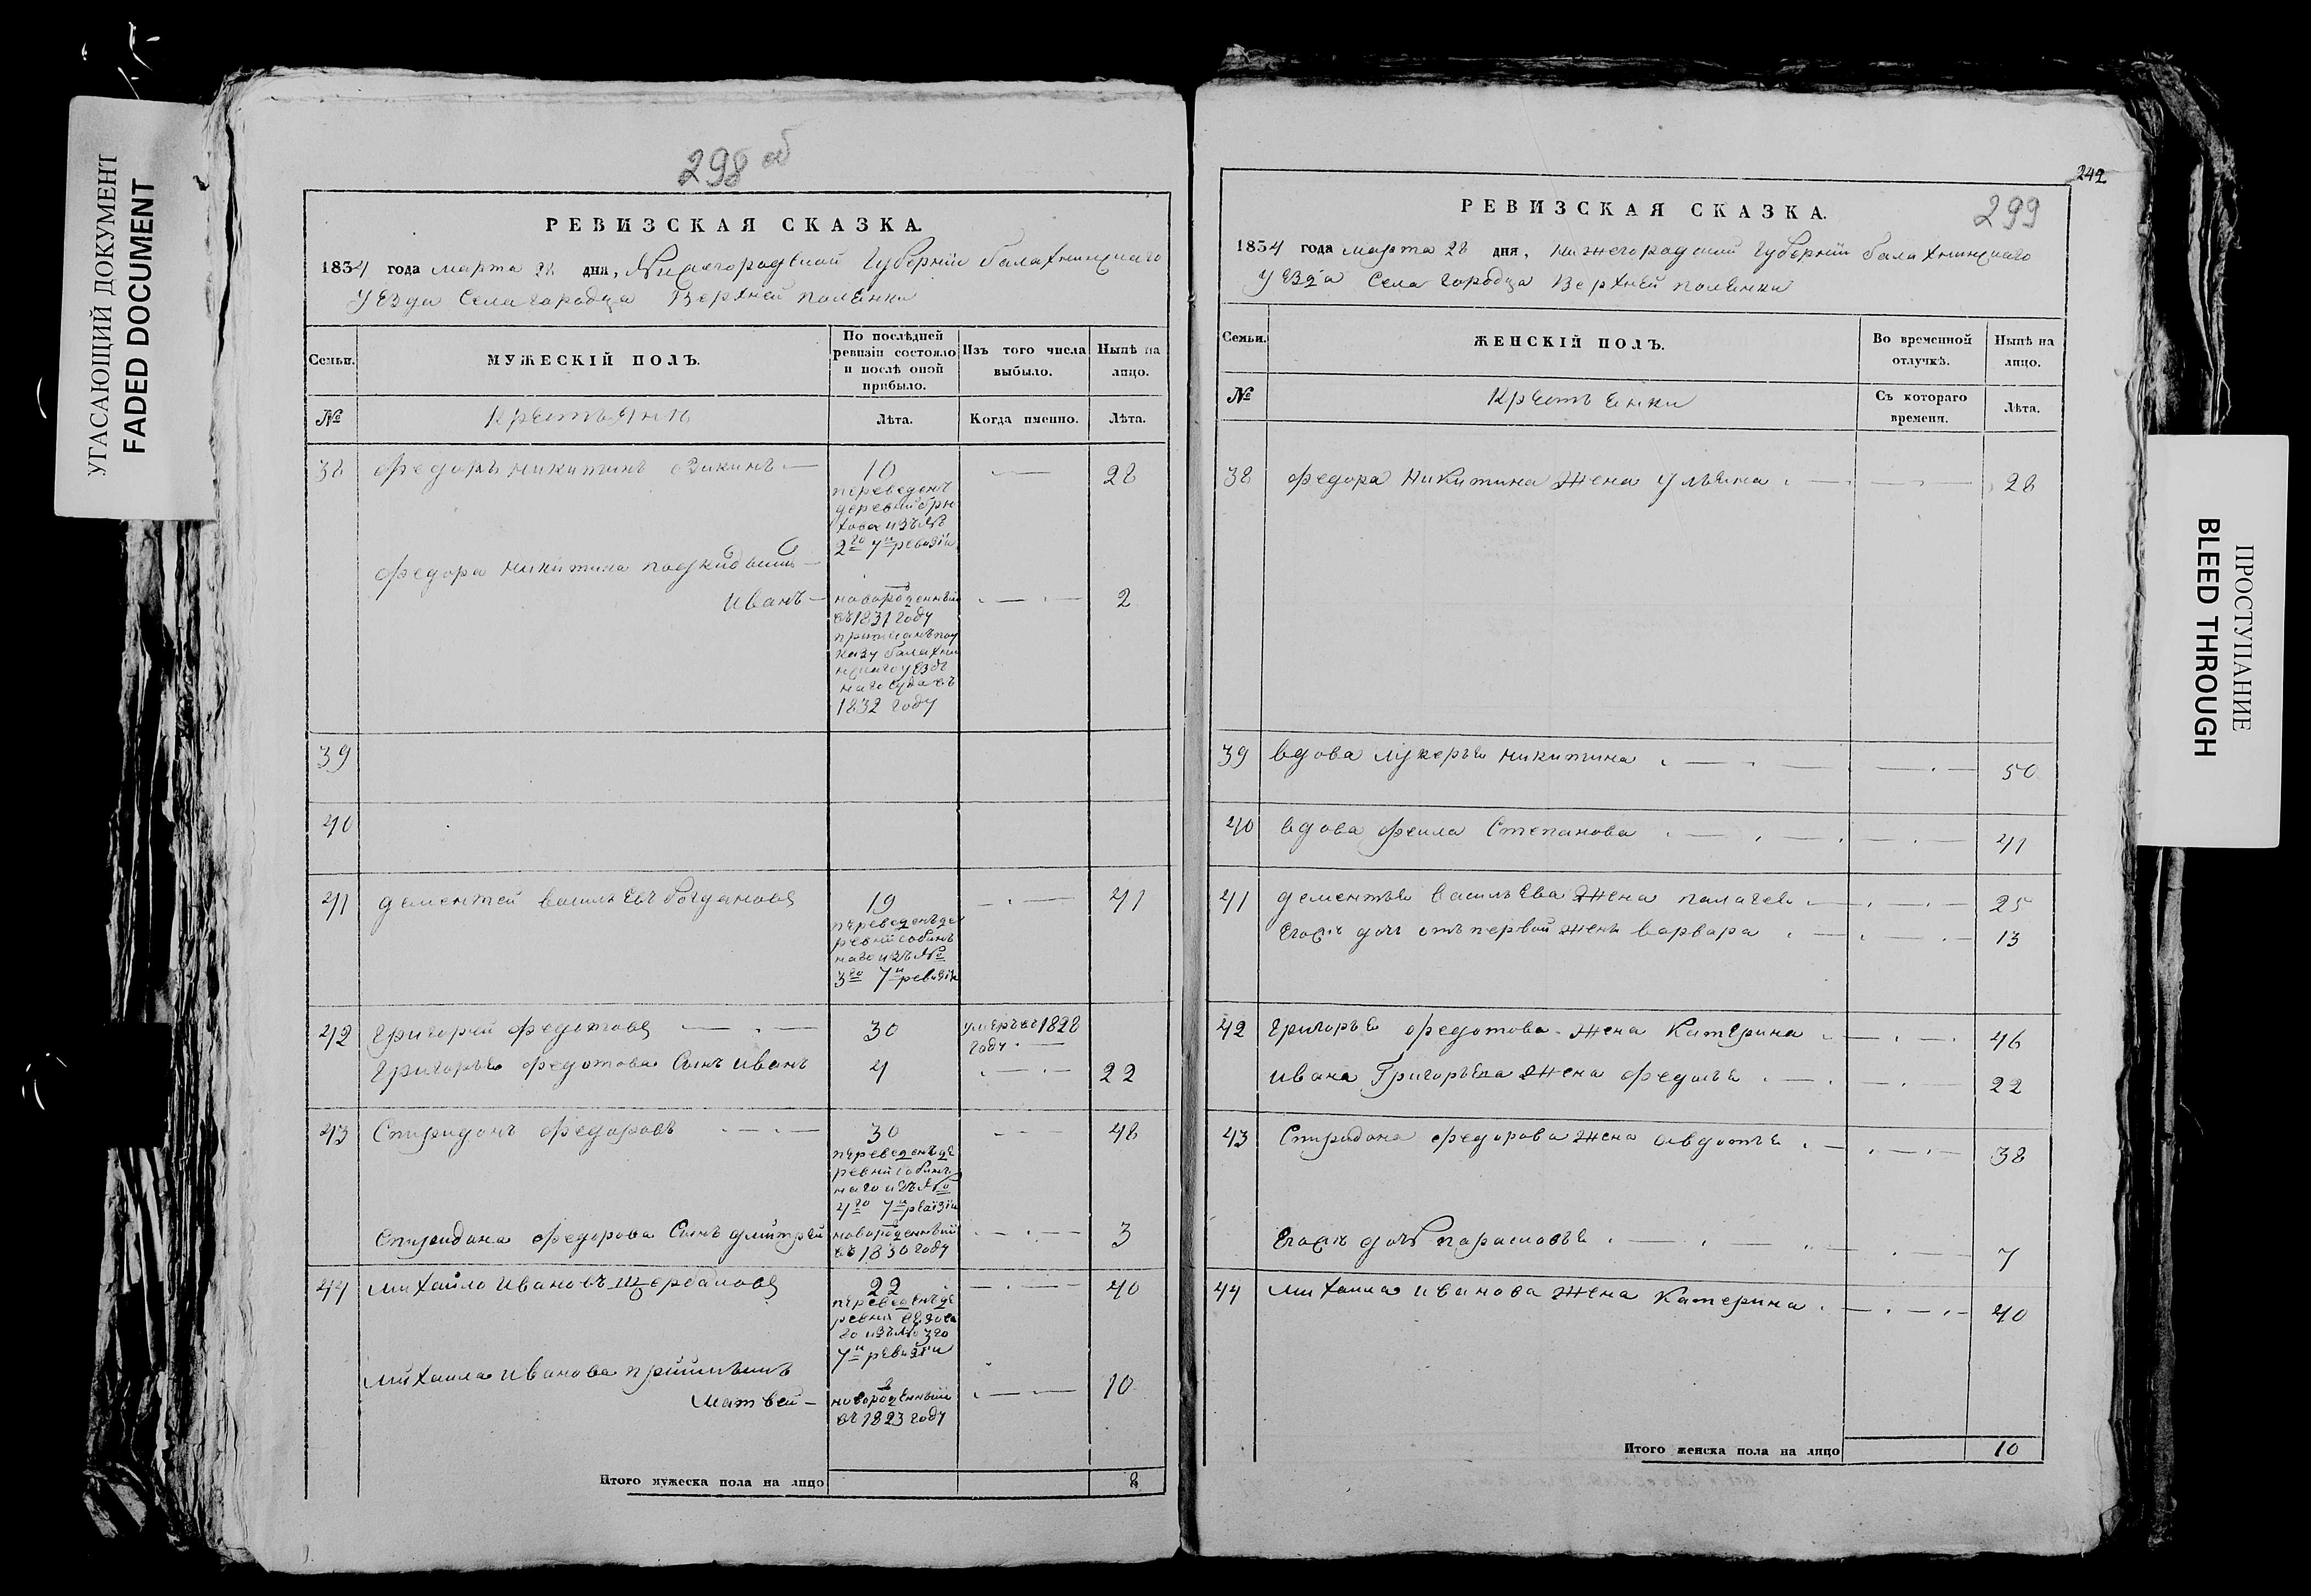 УГАСАЮЩИЙ ДОКУМЕНТ
FADED DOCUMENT
298 об
РЕВИЗСКАЯ СКАЗКА.
1834 года марта 28 дня, Нижегородской Губернии балахнинскаго
уезда Села городца Верхней полянки
Семьи.
МУЖЕСКІЙ ПОЛЪ.
По послѣдней ревизіи состояло и послѣ оной прибыло.
Изъ того числа выбыло.
Нынѣ на лицо.
№
Крестьяня
Лѣта.
Когда именно.
Лѣта.
38 федоръ никитинъ 10 28
переведенъ
деревни
изъ №
2го 7й ревизіи
федора никитина
иванъ новорожденный 2
въ 1831 году
балахнин
скаго уезд
наго суда въ
1832 году
39
40
41 дементей васильевъ богдановъ 19 41
переведенъ де
ревни
наго изъ №
3го 7й ревизіи
42 григорей федотовъ 30 умеръ въ 1828
году
григорья федотова сынъ иванъ 4 22
43 Спиридонъ федоровъ 30 48
переведенъ де
ревни
наго изъ №
4го 7й ревизіи
спиридона федорова сынъ дмитрей новорожденный 3
въ 1830 году
44 михайло ивановъ щербаковъ 22 40
переведенъ де
ревни
го изъ № 3го
7й ревизіи
михаила иванова приимышъ
матвей новорожденный 10
въ 1823 году
Итого мужеска пола на лицо 8
242
299
РЕВИЗСКАЯ СКАЗКА.
1834 года марта 28 дня, нижегородской губернии балахнинскаго
уезда Села городца Верхней полянки
Семьи.
ЖЕНСКІЙ ПОЛЪ.
Во временной отлучкѣ.
Нынѣ на лицо.
№
Крестьянки
Съ котораго времени.
Лѣта.
38 федора никитина жена ульяна 28
39 вдова лукерья никитина 50
40 вдова феила Степанова 41
41 дементья васильева жена палагея 25
его дочь отъ первой жены варвара 13
42 григорья федотова жена катерина 46
ивана Григорьева жена федосья 22
43 Спиридона федорова жена авдотья 38
его дочь парасковья 7
44 михаила иванова жена катерина 40
Итого женска пола на лицо 10
ПРОСТУПАНИЕ
BLEED THROUGH